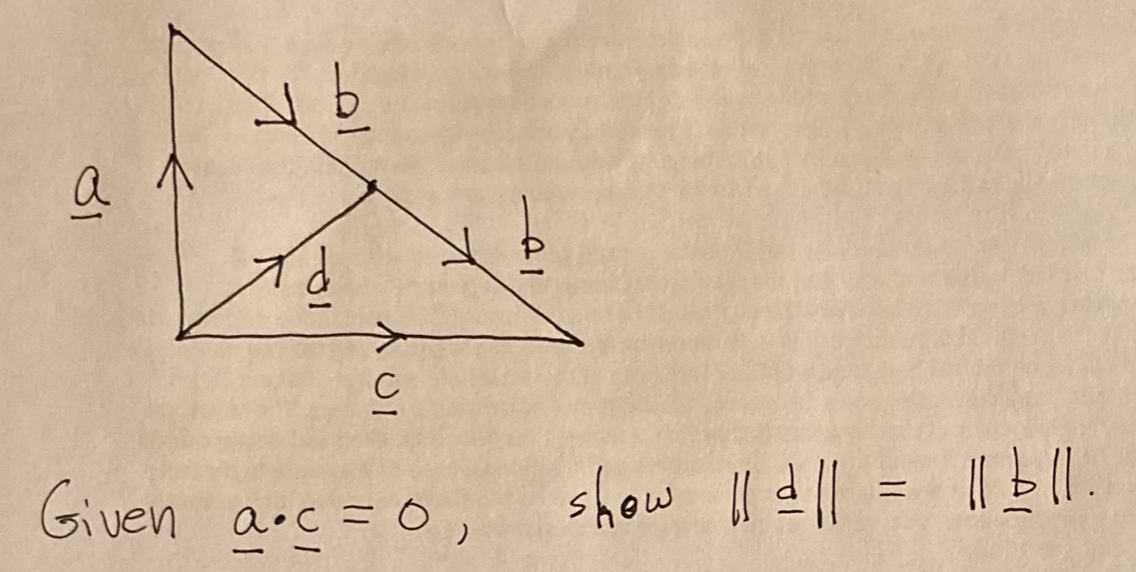 b
a
b
d
c
Given a·c = 0, show ||d|| = ||b||.